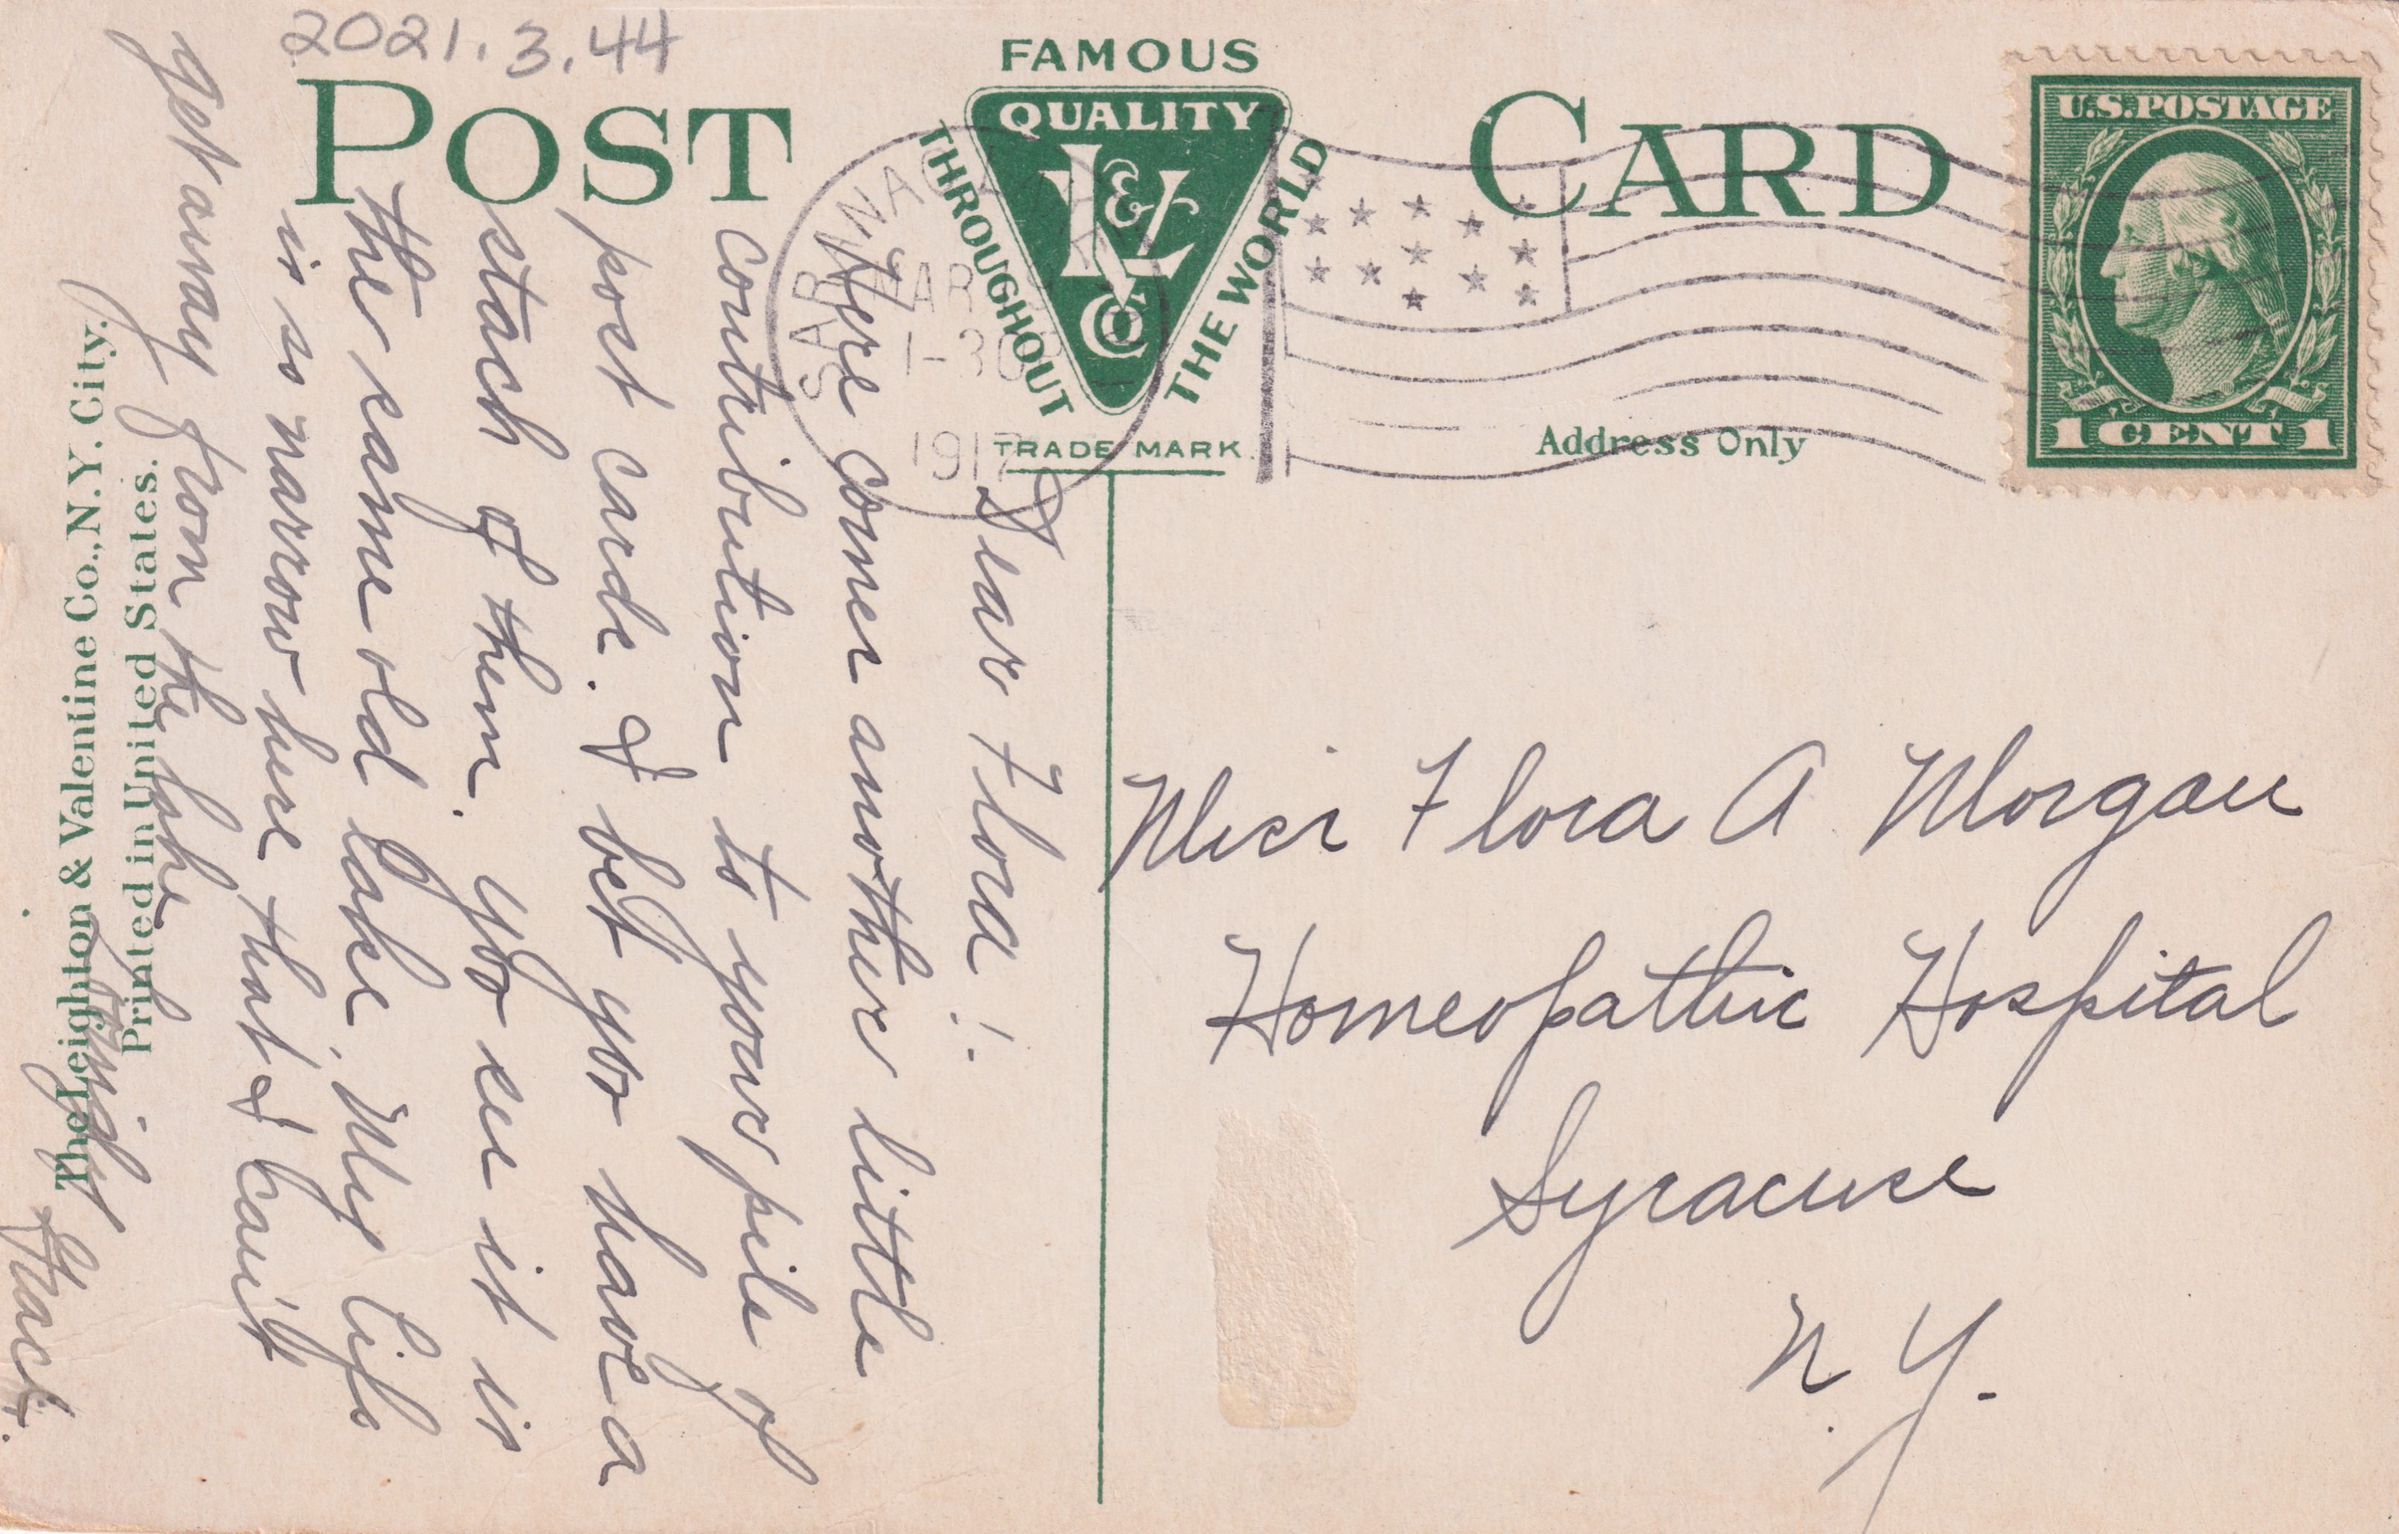 2021.3.44
POST CARD
FAMOUS
QUALITY
THROUGHOUT
THE WORLD
L & V Co
TRADE MARK
SARANAC LAKE
MAR
1-30 P
1917
U.S. POSTAGE
1 CENT 1
Address Only
Dear Flora!
Here comes another little
contribution to your pile of
post cards. I bet you have a
stack of them. You see it is
the same old lake. My life
is so narrow here that I can't
get away from the lake
Grace.
Miss Flora A Morgan
Homeopathic Hospital
Syracuse
N.Y.
The Leighton & Valentine Co., N.Y. City.
Printed in United States.